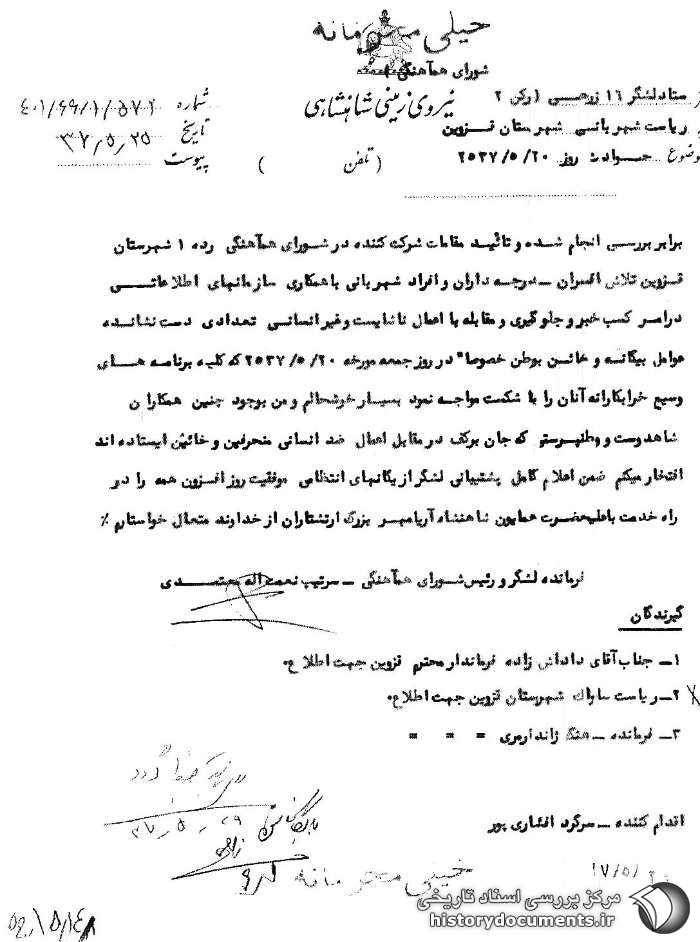 خیلی محرمانه
شورای هم‌آهنگی
از ستاد لشگر ۱۶ زرهی (رکن ۲ نیروی زمینی شاهنشاهی شماره ۴۰۱/۶۶/۱/۵۷۲
ریاست شهربانی شهرستان قزوین تاریخ ۳۷٫۵٫۲۵
موضوع حوادث روز ۲۵۳۷/۵/۲۰ (تلفن ) پیوست
برابر بررسی انجام شده و تائید مقامات شرکت کننده در شورای همآهنگی رده ۱ شهرستان
قزوین تلاش افسران ـ درجه داران و افراد شهربانی با همکاری سازمانهای اطلاعاتی
در امر کسب خبر و جلوگیری و مقابله با اعمال ناشایست و غیر انسانی تعدادی دست نشانده
عوامل بیگانه و خائن بوطن خصوصا" در روز جمعه مورخه ۲۵۳۷/۵/۲۰ که کلیه برنامه های
وسیع خرابکارانه آنان را با شکست مواجه نمود بسیار خوشحالم و من بوجود چنین همکاران
شاهدوست و وطنپرستی که جان برکف در مقابل اعمال ضد انسانی منحرفین و خائنین ایستاده اند
افتخار میکنم ضمن اعلام کامل پشتیبانی لشگر از یکانهای انتظامی موفقیت روز افزون همه را در
راه خدمت باعلیحضرت همایون شاهنشاه آریامهر بزرگ ارتشتاران از خداوند متعال خواستارم ٪
فرمانده لشگر و رئیس شورای همآهنگی ـ سرتیپ نعمت اله معتمدی
گیرندگان
۱ـ جناب آقای داداش زاده فرماندار محترم قزوین جهت اطلاع.
۲ـ ریاست ساواک شهرستان قزوین جهت اطلاع.
۳ـ فرمانده ـ هنگ ژاندارمری = = =
اقدام کننده ـ سرگرد افشاری پور
۳۷٫۵٫۲۹
خیلی محرمانه
مرکز بررسی اسناد تاریخی
historydocuments.ir